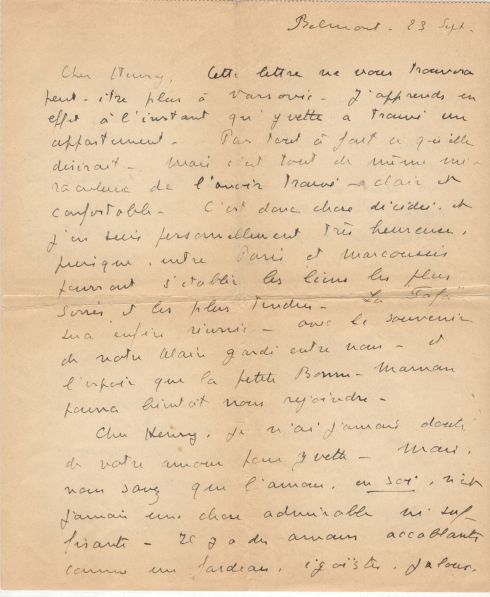 Belmont. 23 Sept.
Cher Henry, Cette lettre ne vous trouvera
peut-être plus à Varsovie. J'apprends en
effet à l'instant qu'Yvette a trouvé un
appartement. Pas tout à fait ce qu'elle
désirait. Mais c'est tout de même mi-
raculeux de l'avoir trouvé - clair et
confortable. C'est donc chose décidée, et
j'en suis personnellement très heureuse,
puisque, entre Paris et Marcoussis
pourront s'établir les liens les plus
serrés et les plus tendres - La
sera enfin réunie - avec le souvenir
de notre Alain gardé entre nous - et
l'espoir que la petite Bonne-Maman
pourra bientôt nous rejoindre -
Cher Henry, je n'ai jamais douté
de votre amour pour Yvette - Mais,
vous savez que l'amour, en soi, n'est
jamais une chose admirable ni suf-
fisante - Il y a des amours accablants
comme un fardeau, égoïstes, jaloux,